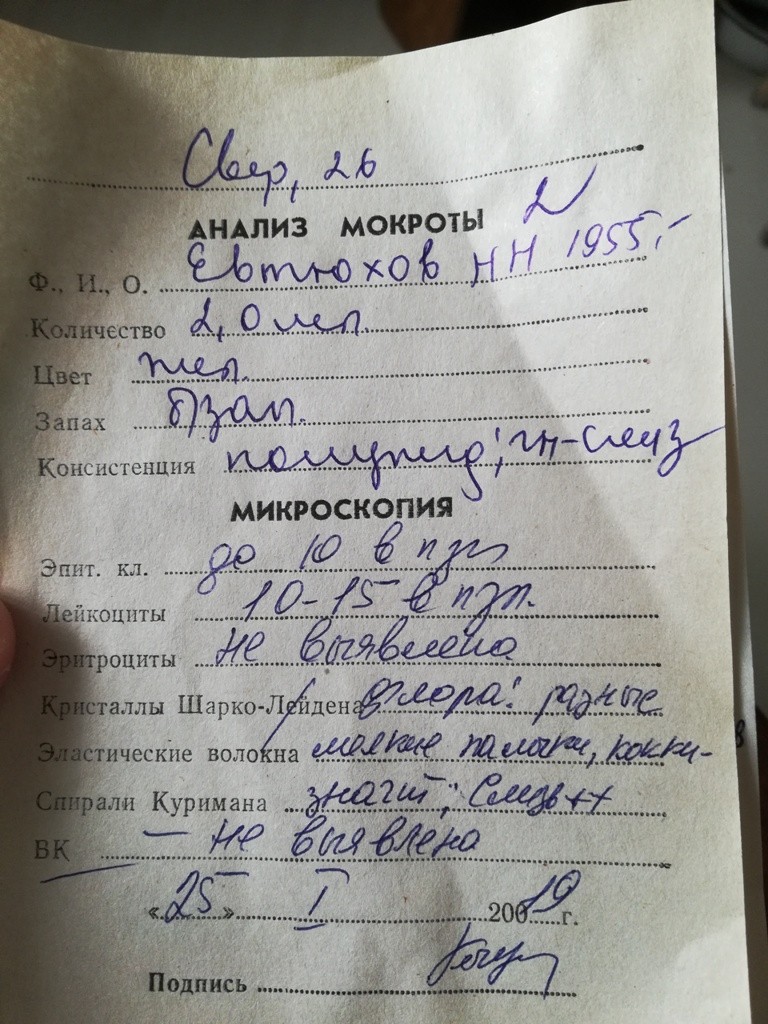 Свер, 26
АНАЛИЗ МОКРОТЫ 2
Ф., И., О. Евтюхов НН 1955г
Количество 2,0 мл.
Цвет жел.
Запах
Консистенция полужид; гн-слиз
МИКРОСКОПИЯ
Эпит. кл. до 10 в п/зр
Лейкоциты 10-15 в п/зр.
Эритроциты не выявлено
Кристаллы Шарко-Лейдена флора: разные
Эластические волокна мелкие палочки, кокки-
Спирали Куримана значит; слизь ++
ВК — не выявлено
«25» I 20019 г.
Подпись